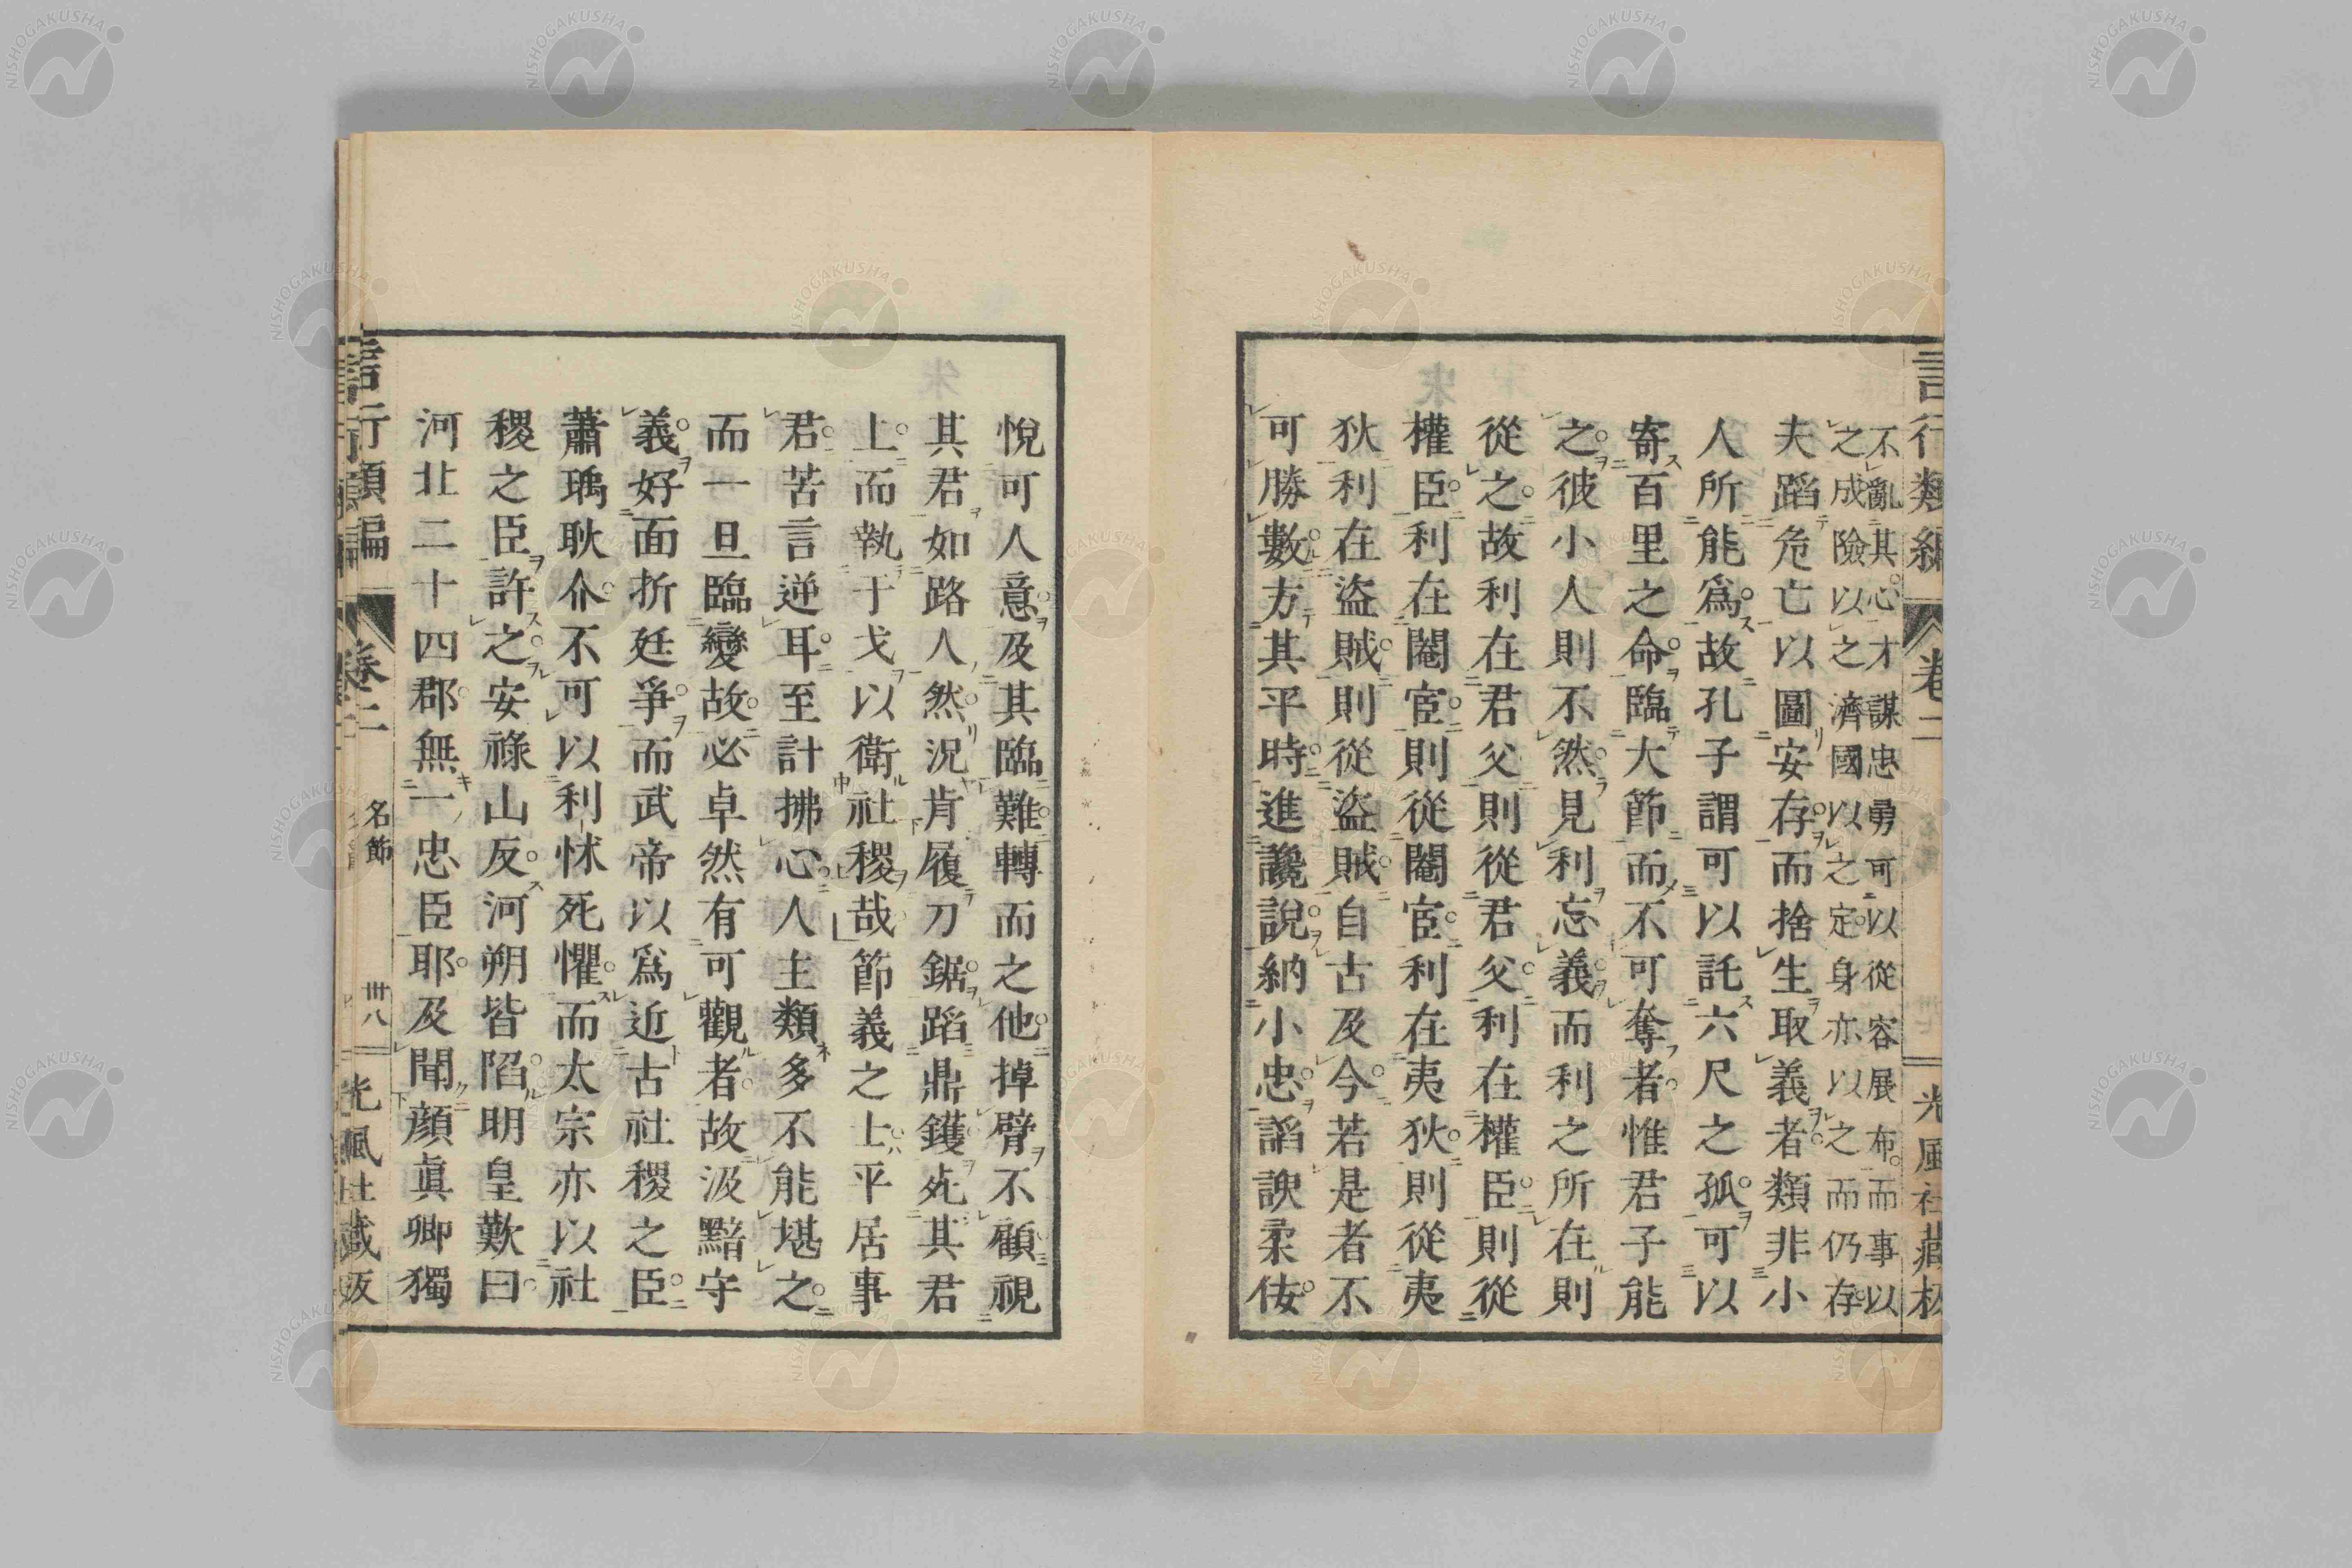 言行類編 卷二 光風社藏板
不亂其心才謀忠勇可以從容展布而事以
之成險以之濟國以之定身亦以之而仍存
夫蹈危亡以圖安存而捨生取義者類非小
人所能爲故孔子謂可以託六尺之孤可以
寄百里之命臨大節而不可奪者惟君子能
之彼小人則不然見利忘義而利之所在則
從之故利在君父則從君父利在權臣則從
權臣利在閹宦則從閹宦利在夷狄則從夷
狄利在盜賊則從盜賊自古及今若是者不
可勝數方其平時進讒說納小忠謟諛柔佞
悅可人意及其臨難轉而之他掉臂不顧視
其君如路人然況肯履刀鋸蹈鼎鑊死其君
上而執于戈以衛社稷哉節義之士平居事
君苦言逆耳至計拂心人主類多不能堪之
而一旦臨變故必卓然有可觀者故汲黯守
義好面折廷爭而武帝以爲近古社稷之臣
蕭瑀耿介不可以利怵死懼而太宗亦以社
稷之臣許之安祿山反河朔皆陷明皇歎曰
河北二十四郡無一忠臣耶及聞顏眞卿獨
言行類編 卷二 名節 卅八 光風社藏板